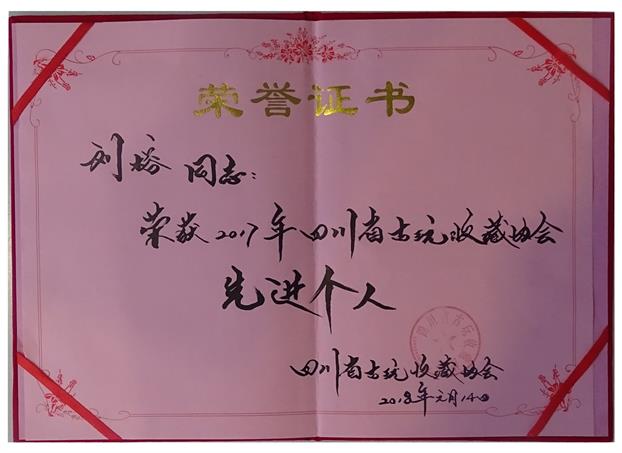 荣誉证书
刘榕 同志：
荣获2017年四川省古玩收藏协会
先进个人
四川省古玩收藏协会
2018年元月14日